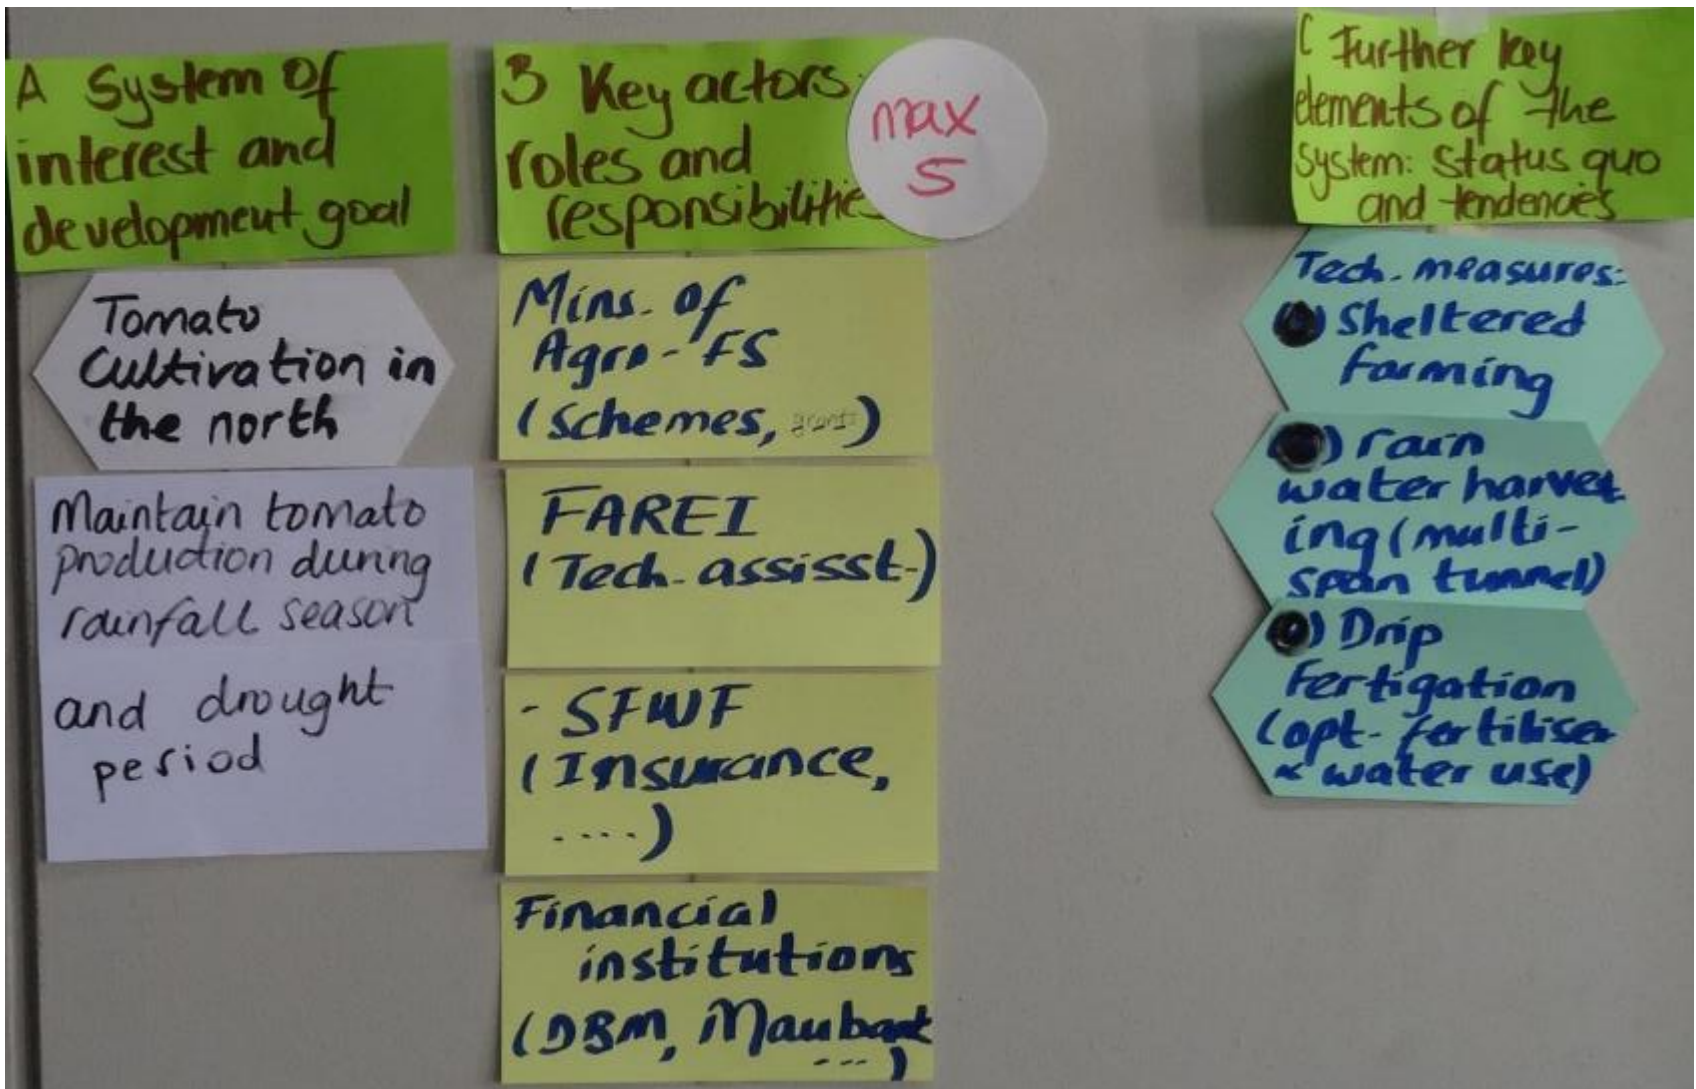 A System of
interest and
development goal
Tomato
Cultivation in
the north
Maintain tomato
production during
rainfall season
and drought
period
B Key actors,
roles and
responsibilities
max
5
Mins. of
Agro-FS
(Schemes, grants)
FAREI
(Tech-assisst-)
- SFWF
(Insurance,
....)
Financial
institutions
(DBM, Maubank
---)
C Further key
elements of the
System: status quo
and tendencies
Tech. measures:
) Sheltered
farming
) rain
water harvest
ing (multi-
span tunnel)
) Drip
Fertigation
(opt- fertiliser
& water use)